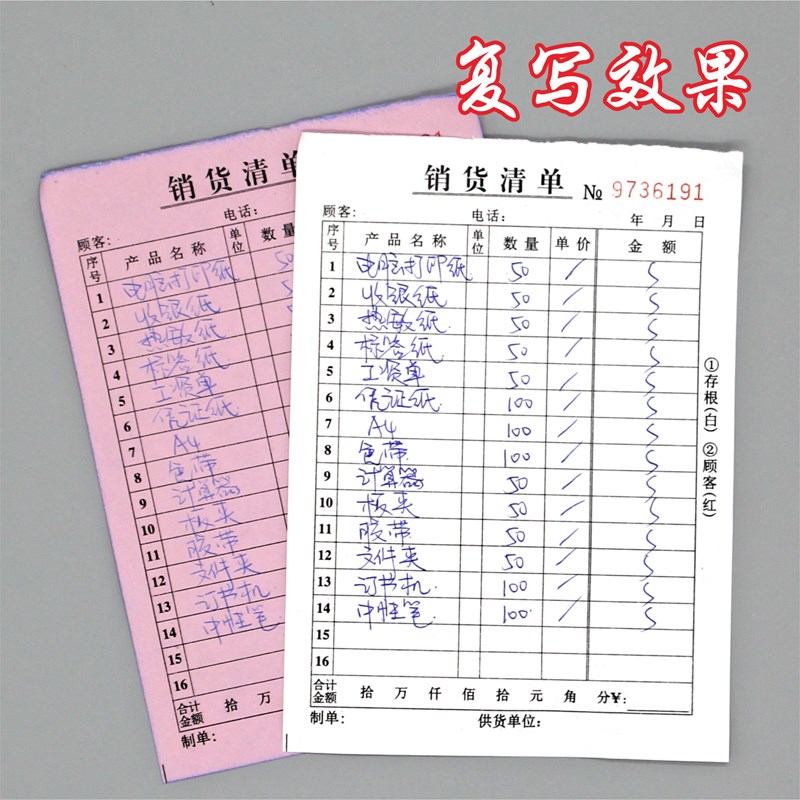 复写效果
销货清单
顾客: 电话:
序号 产品名称 单位 数量
1 电脑打印纸 50
2 收银纸
3 热敏纸
4 标签纸
5 工资单
6 凭证纸
7 A4
8 色带
9 计算器
10 板夹
11 胶带
12 文件夹
13 订书机
14 中性笔
15
16
合计金额 拾 万
制单:
销货清单 № 9736191
顾客: 电话: 年 月 日
序号 产品名称 单位 数量 单价 金额
1 电脑打印纸 50 /
2 收银纸 50 /
3 热敏纸 50 /
4 标签纸 50 /
5 工资单 50 /
6 凭证纸 100 /
7 A4 100 /
8 色带 100 /
9 计算器 50 /
10 板夹 50 /
11 胶带 50 /
12 文件夹 50 /
13 订书机 100 /
14 中性笔 100 /
15
16
合计金额 拾 万 仟 佰 拾 元 角 分¥:
制单: 供货单位:
①存根(白) ②顾客(红)